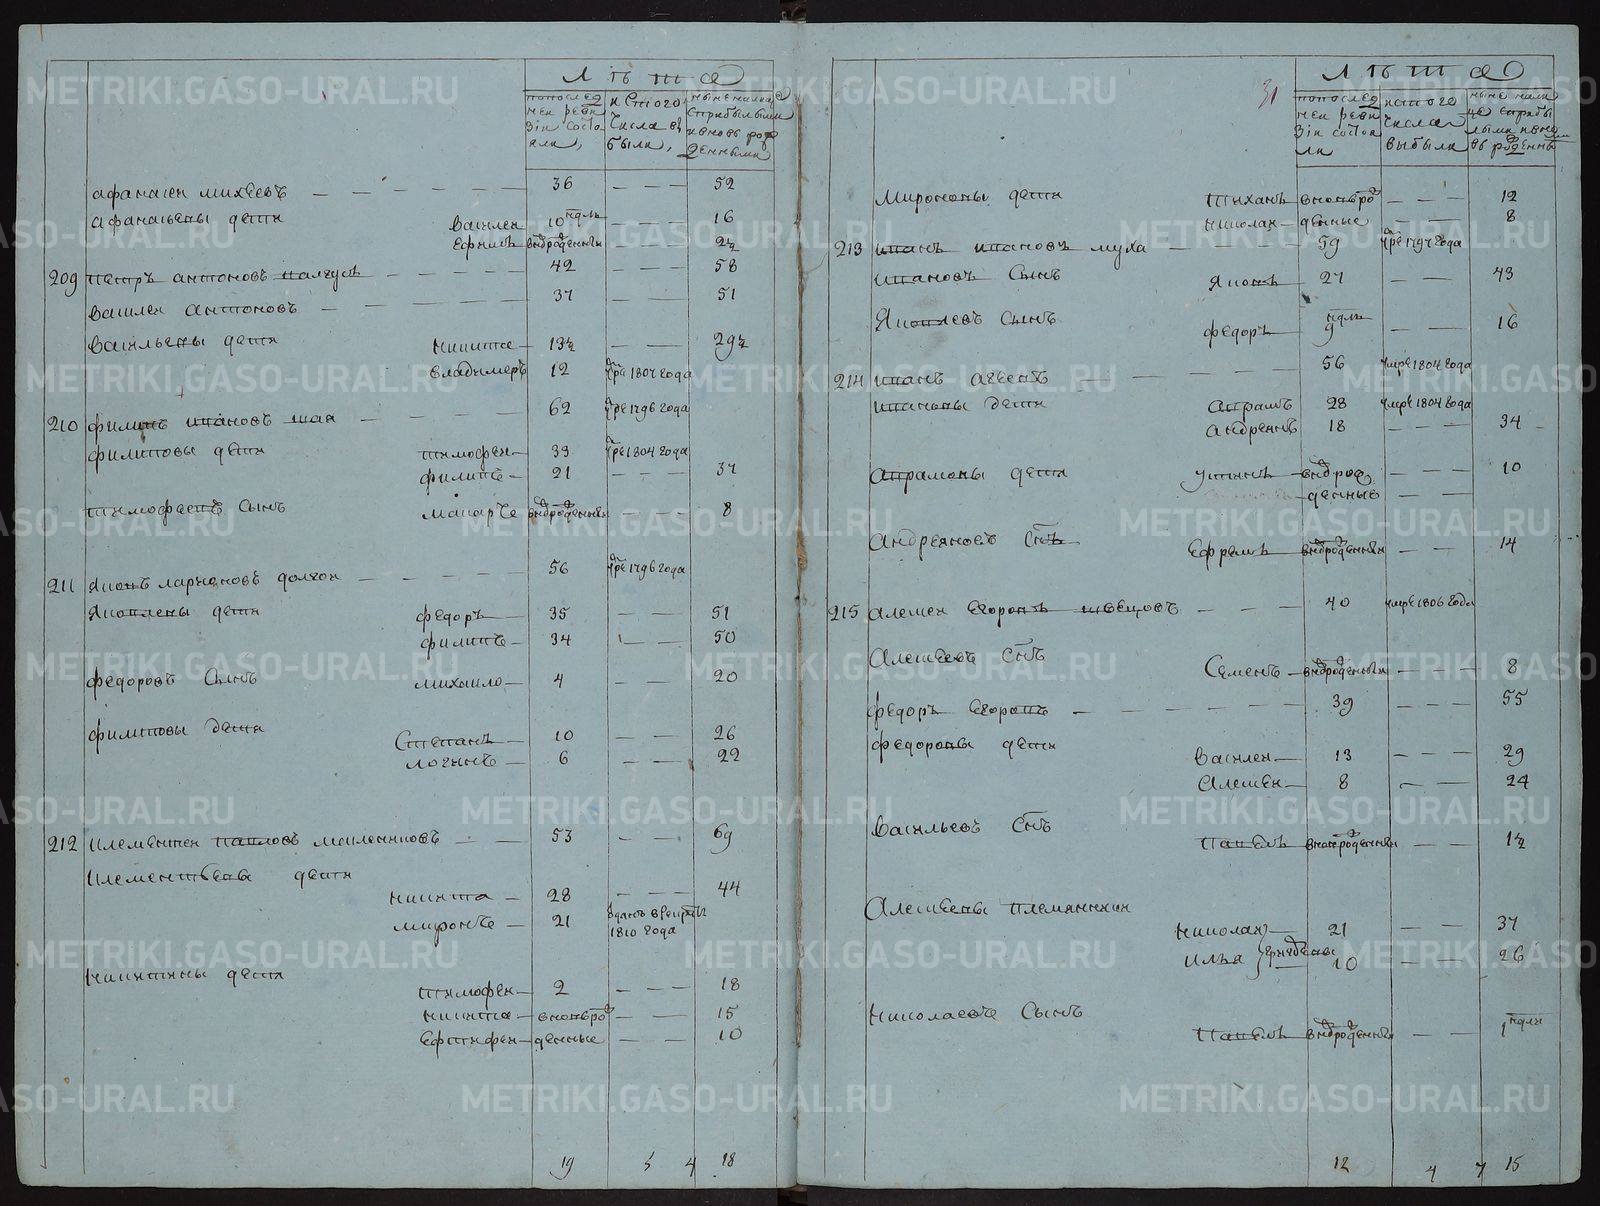 Лѣта
попослед
ней реви
зіи состо
яли,
исного
числа вы
были,
ныне налице
сприбылыми
ивновь рож
денными
афанасеи михеевъ — 36 — 52
афанасьевы дети
василеи 10 ндль — 16
Ефимъ вновьрожденныи — 2½
209 Петръ антоновъ — 42 — 58
василеи антоновъ — 37 — 51
васильевы дети никита — 13½ — 29½
владимеръ 12 умре 1807 года
210 филипъ ивановъ шая — 62 умре 1796 года
филиповы дети тимофеи — 33 умре 1804 года
филипъ — 21 — 37
тимофеевъ сынъ макаръ вновьрожденныи — 8
211 яковъ ларионовъ долгои — 56 умре 1796 года
яковлевы дети федоръ — 35 — 51
филипъ — 34 — 50
федоровъ сынъ михаило — 4 — 20
филиповы дети
степанъ — 10 — 26
логинъ — 6 — 22
212 клементеи павловъ масленниковъ — 53 — 69
клементьевы дети
никита — 28 — 44
миронъ — 21 отданъ в рекруты
1810 года
никитины дети
тимофеи — 2 — 18
никита — вновьро — 15
Ефтифеи — жденные — 10
19 5 4 18
31
Лѣта
попослед
ней реви
зіи состоя
ли
исного
числа
выбыли
ныне нали
це сприбы
лыми ивно
вь рожденны
ми
Мироновы дети тиханъ вновьро — 12
николаи — жденные — 8
213 иванъ ивановъ муха — 59 умре 1797 года
ивановъ сынъ яковъ — 27 — 43
яковлевъ сынъ федоръ — 9 ндль — 16
214 иванъ агеевъ — 56 умре 1804 года
ивановы дети авраамъ 28 умре 1804 года
андреянъ 18 — 34
аврамовы дети устинъ — вновьрож — 10
— денные — —
Андреяновъ снъ Ефремъ — вновьрожденныи — 14
215 алексеи Егоровъ швецовъ — 40 умре 1806 года
Алексеевъ снъ Семенъ — вновьрожденныи — 8
федоръ Егоровъ — 39 — 55
федоровы дети василеи — 13 — 29
Алексеи — 8 — 24
васильевъ снъ павелъ вновьрожденныи — 1½
Алексеевы племянники
николаи — 21 — 37
илья 10 — 26
николаевъ сынъ
павелъ — вновьрожденныи — 1 ндли
12 4 7 15
METRIKI.GASO-URAL.RU